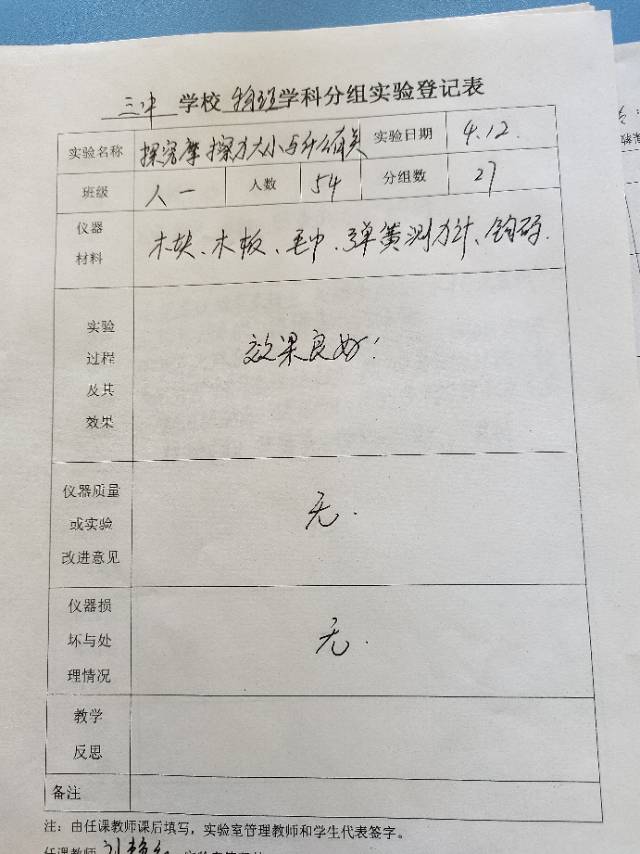 三中 学校 物理 学科分组实验登记表
实验名称 探究摩擦力大小与什么有关 实验日期 4.12.
班级 八一 人数 54 分组数 27
仪器
材料 木块、木板、毛巾、弹簧测力计、钩码.
实验
过程
及其
效果
效果良好!
仪器质量
或实验
改进意见
无.
仪器损
坏与处
理情况
无.
教学
反思
备注
注：由任课教师课后填写，实验室管理教师和学生代表签字。
任课教师